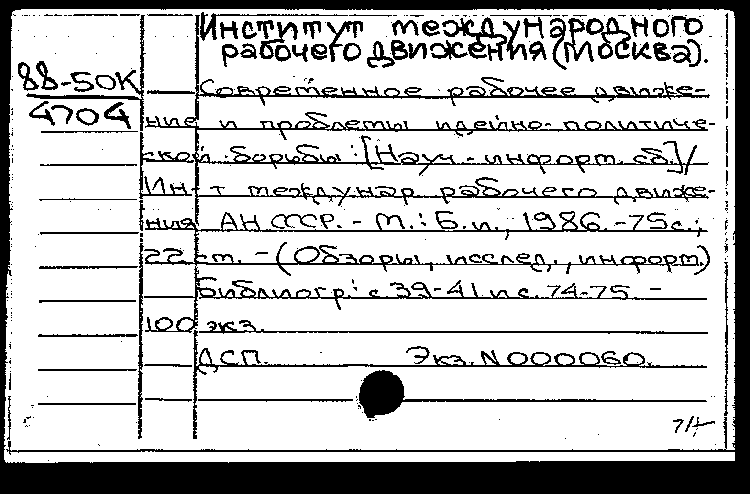 Институт международного
рабочего движения (Москва).
88-50К
4704
Современное рабочее движе-
ние и проблемы идейно-политиче-
ской борьбы: [Науч.-информ. сб.]/
Ин-т междунар. рабочего движе-
ния АН СССР. - М.: Б.и., 1986. - 75с.;
22 см. - (Обзоры, исслед., информ)
Библиогр.: с. 39-41 и с. 74-75 -
100 экз.
ДСП. Экз. N 000060.